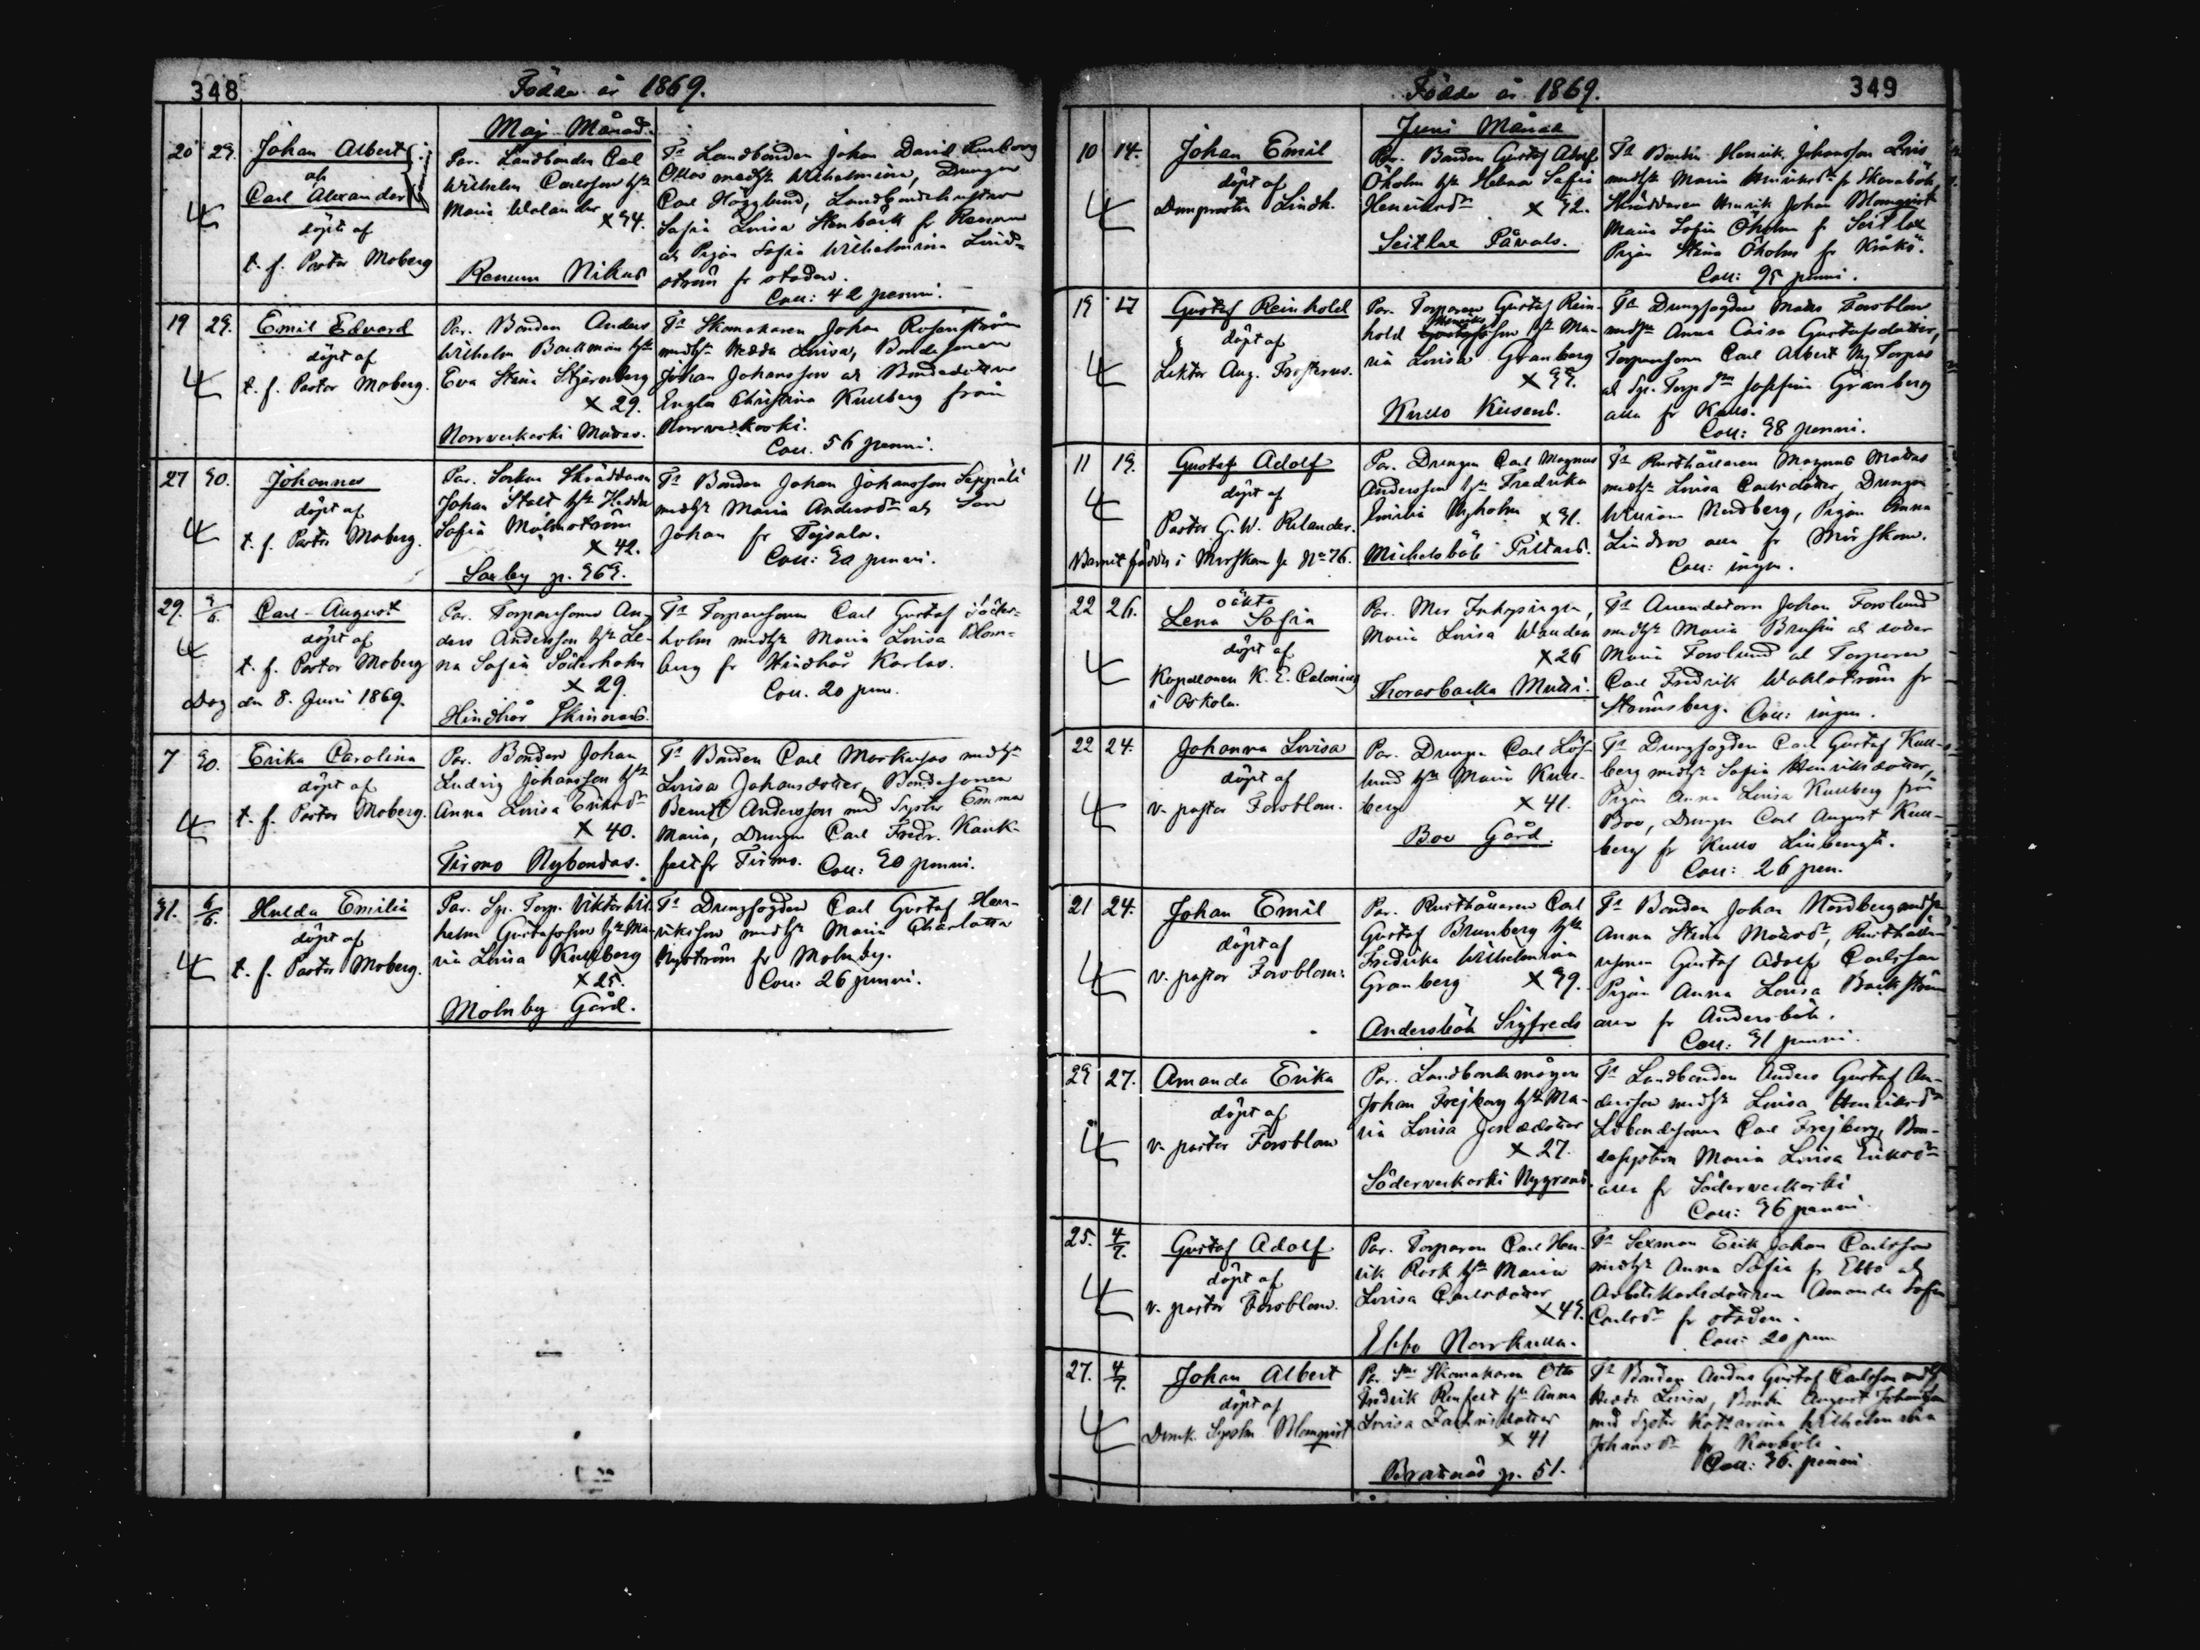 348
Födda år 1869.
Maj Månad.
20 23. Johan Albert
och
Carl Alexander
döpt af
t. f. Pastor Moberg
Par. Landbonden Carl
Wilhelm Carlsson hu
Maria Welander
X 34.
Renum Nikus
Fr Landbonden Johan David
Ottos medh Wilhelmina, Drengen
Carl Högglund, Landbondehustrun
Sofia Lovisa Stenbäck fr
ch Pigan Sofia Wilhelmina Lind-
ström fr staden.
Coll: 42 penni.
19 29. Emil Edvard
döpt af
t. f. Pastor Moberg.
Par. Bonden Anders
Wilhelm Backman hu
Eva Stina Stjernberg
X 29.
Norrveckoski Mattas.
Fr Skomakaren Johan Rosenström
medh Hedda Lovisa, Bondesonen
Johan Johansson ch Bondedottren
Engla Christina Kullberg från
Norrveckoski.
Coll. 56 penni.
27 30. Johannes
döpt af
t. f. Pastor Moberg.
Par. Socken Skräddaren
Johan Stolt hu Hedda
Sofia Malmström
X 42.
Saxby p. 363.
Fr Bonden Johan Johansson Seppälä
medh Maria Andersdr ch Son
Johan fr Tejsala.
Coll: 30 penni.
29. 3/6. Carl August
döpt af
t. f. Pastor Moberg
Dog den 8. Juni 1869.
Par. Torparesonen An-
ders Andersson hu Le-
na Sofia Söderholm
X 29.
Hindhår Skinnars.
Fr Torparesonen Carl Gustaf Söder-
holm medh Maria Lovisa Blom-
berg fr Hindhår Karlas.
Coll. 20 pen.
7 30. Erika Carolina
döpt af
t. f. Pastor Moberg.
Par. Bonden Johan
Ludvig Johansson hu
Anna Lovisa Eriksdr
X 40.
Tirmo Nybondas.
Fr Bonden Carl Markusas medh
Lovisa Johansdotter, Bondesonen
Berndt Andersson med Syster Emma
Maria, Drengen Carl Fredr. Kauk-
felt fr Tirmo. Coll: 30 penni.
31. 6/6. Hulda Emilia
döpt af
t. f. Pastor Moberg.
Par. Sp. Torp. Viktor Wil-
helm Gustafsson hu Ma-
ria Lovisa Kullberg
X 25.
Molnby Gård.
Fr Drengfogden Carl Gustaf Hen-
riksson medh Maria Charlotta
Nyström fr Molnby.
Coll: 26 penni.
Födda år 1869.
349
Juni Månad
10 14. Johan Emil
döpt af
Domprosten Lindh.
Par. Bonden Gustaf Adolf
Öholm hu Helena Sofia
Henriksdr X 32.
Seitlax Påvals.
Fr Bonden Henrik Johansson
medh Maria Henriksdr fr Skavaböle
Skräddaren Henrik Johan Blomqvist
Maria Sofia Öholm fr Seitlax
Pigan Stina Öholm fr Kråkö.
Coll: 95 penni.
19 17 Gustaf Reinhold
döpt af
Lektor Aug. Frosterus.
Par. Torparen Gustaf Rein-
hold Henriksson hu Ma-
ria Lovisa Granberg
X 33.
Kullo Kusens.
Fr Drengfogden Mats Forsblom
medh Anna Caisa Gustafsdotter,
Torparesonen Carl Albert Torpas
ch Sp. Torp Josefina Granberg
alla fr Kullo.
Coll: 38 penni.
11 19. Gustaf Adolf
döpt af
Pastor G. W. Relander.
Barnet föddes i Mörskom No 76.
Par. Drengen Carl Magnus
Andersson hu Fredrika
Emilia Nyholm X 31.
Michelsböle Pittars.
Fr Rusthållaren Magnus Mattas
medh Lovisa Carlsdotter, Drengen
William Nordberg, Pigan Anna
Lindroos alla fr Mörskom.
Coll: ingen.
22 26. oäkta
Lena Sofia
döpt af
Kapellanen K. E. Calonius
i Askola.
Par. Mor Inhysingen,
Maria Lovisa
X 26
Thorasbacka Mulli.
Fr Arrendatorn Johan Forslund
medh Maria ch dotter
Maria Forslund ch Torparen
Carl Fredrik Wahlström fr
Strömsberg. Coll: ingen.
22 24. Johanna Lovisa
döpt af
v. pastor Forsblom.
Par. Drengen Carl Löf-
lund hu Maria Kull-
berg X 41.
Boe Gård.
Fr Drengfogden Carl Gustaf Kull-
berg medh Sofia Henriksdotter,
Pigan Anna Lovisa Kullberg från
Boe, Drengen Carl August Kull-
berg fr Kullo
Coll: 26 pen.
21 24. Johan Emil
döpt af
v. pastor Forsblom.
Par. Rusthållaren Carl
Gustaf Brunberg hu
Fredrika Wilhelmina
Granberg X 39.
Andersböle Sigfreds
Fr Bonden Johan Nordberg medh
Anna Stina Matsdr, Rusthålla-
resonen Gustaf Adolf Carlsson
Pigan Anna Lovisa Backström
alla fr Andersböle.
Coll: 31 penni.
23 27. Amanda Erika
döpt af
v. pastor Forsblom
Par. Landbondemågen
Johan Frejborg hu Ma-
ria Lovisa Josefsdotter
X 27.
Söderveckoski Nygrens.
Fr Landbonden Anders Gustaf An-
dersson medh Lovisa Henriksdr
Lbondesonen Carl Frejberg, Bon-
dehustrun Maria Lovisa Eriksdr
alla fr Söderveckoski
Coll: 36 penni.
25. 4/7. Gustaf Adolf
döpt af
v. pastor Forsblom.
Par. Torparen Carl Hen-
rik Rosk hu Maria
Lovisa Carlsdotter
X 43.
Ebbo Norrkulla.
Fr Sexman Erik Johan Carlsson
medh Anna Sofia fr Ebbo ch
Arbetskarlsdottren Amanda Sofia
Carlsdr fr staden.
Coll: 20 pen
27. 4/7. Johan Albert
döpt af
Domk. Syslm Blomqvist
Par. Skomakaren Otto
Fredrik Renfelt hu Anna
Lovisa Zachrisdotter
X 41
Bratnäs p. 51.
Fr Bonden Anders Gustaf Carlsson medh
Hedda Lovisa, Bonden August Johansson
med Syster Katharina Wilhelmina
Johansdr fr
Coll: 36. penni